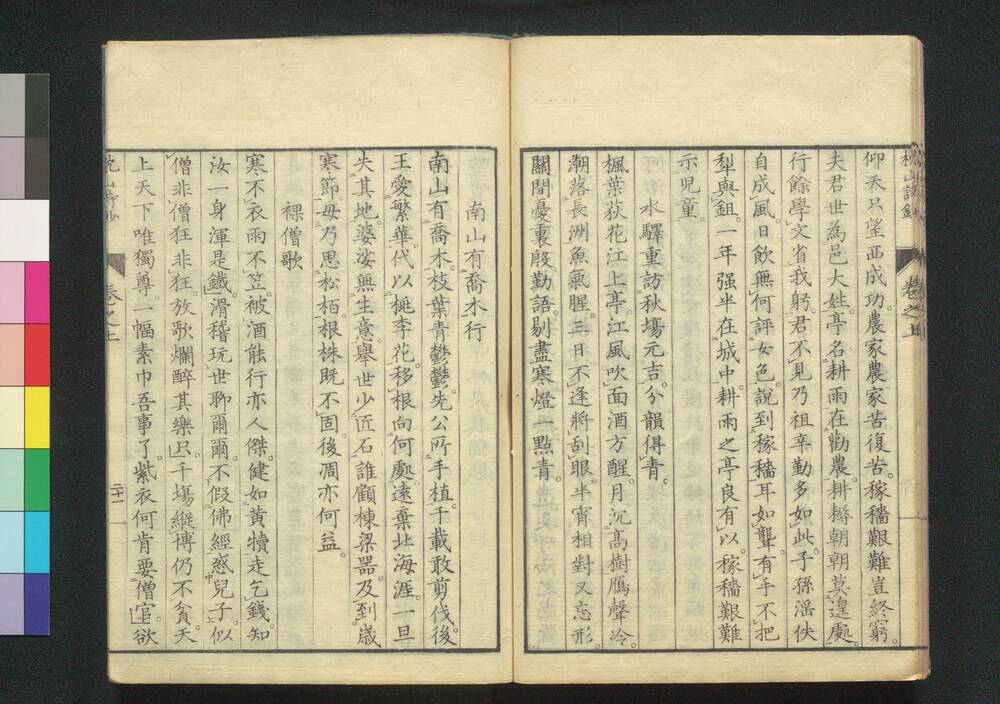 枕山詩鈔 卷之上
仰天只望西成功。農家農家苦復苦。稼穡艱難豈終窮。
夫君世為邑大姓。亭名耕雨在勸農。耕耨朝朝莫遑處。
行餘學文省我躬。君不見乃祖辛勤多如此。子孫滛佚
自成風。日飲無何評女色。說到稼穡耳如聾。有手不把
犁與鉏。一年强半在城中。耕雨之亭良有以。稼穡艱難
示兒童。
水驛重訪秋場元吉。分韻得青。
楓葉荻花江上亭。江風吹面酒方醒。月沉高樹鴈聲冷。
潮落長洲魚氣腥。三日不逢將刮眼。半宵相對又忘形。
關閒憂裏殷勤語。剔盡寒燈一點青。
南山有喬木行
南山有喬木。枝葉青鬱鬱。先公所手植。千載敢剪伐。後
王愛繁華。代以桃李花。移根向何處。遠棄北海涯。一旦
失其地。婆娑無生意。舉世少匠石。誰顧棟梁器。及到歲
寒節。毋乃思松栢。根株既不固。後凋亦何益。
裸僧歌
寒不衣雨不笠。被酒能行亦人傑。健如黃犢走乞錢。知
汝一身渾是鐵。滑稽玩世聊爾爾。不假佛經惑兒子。似
僧非僧狂非狂。放歌爛醉其樂只。千場縱博仍不貪。天
上天下唯獨尊。一幅素巾吾事了。紫衣何肯要僧官。欲
枕山詩鈔 卷之上 二十一